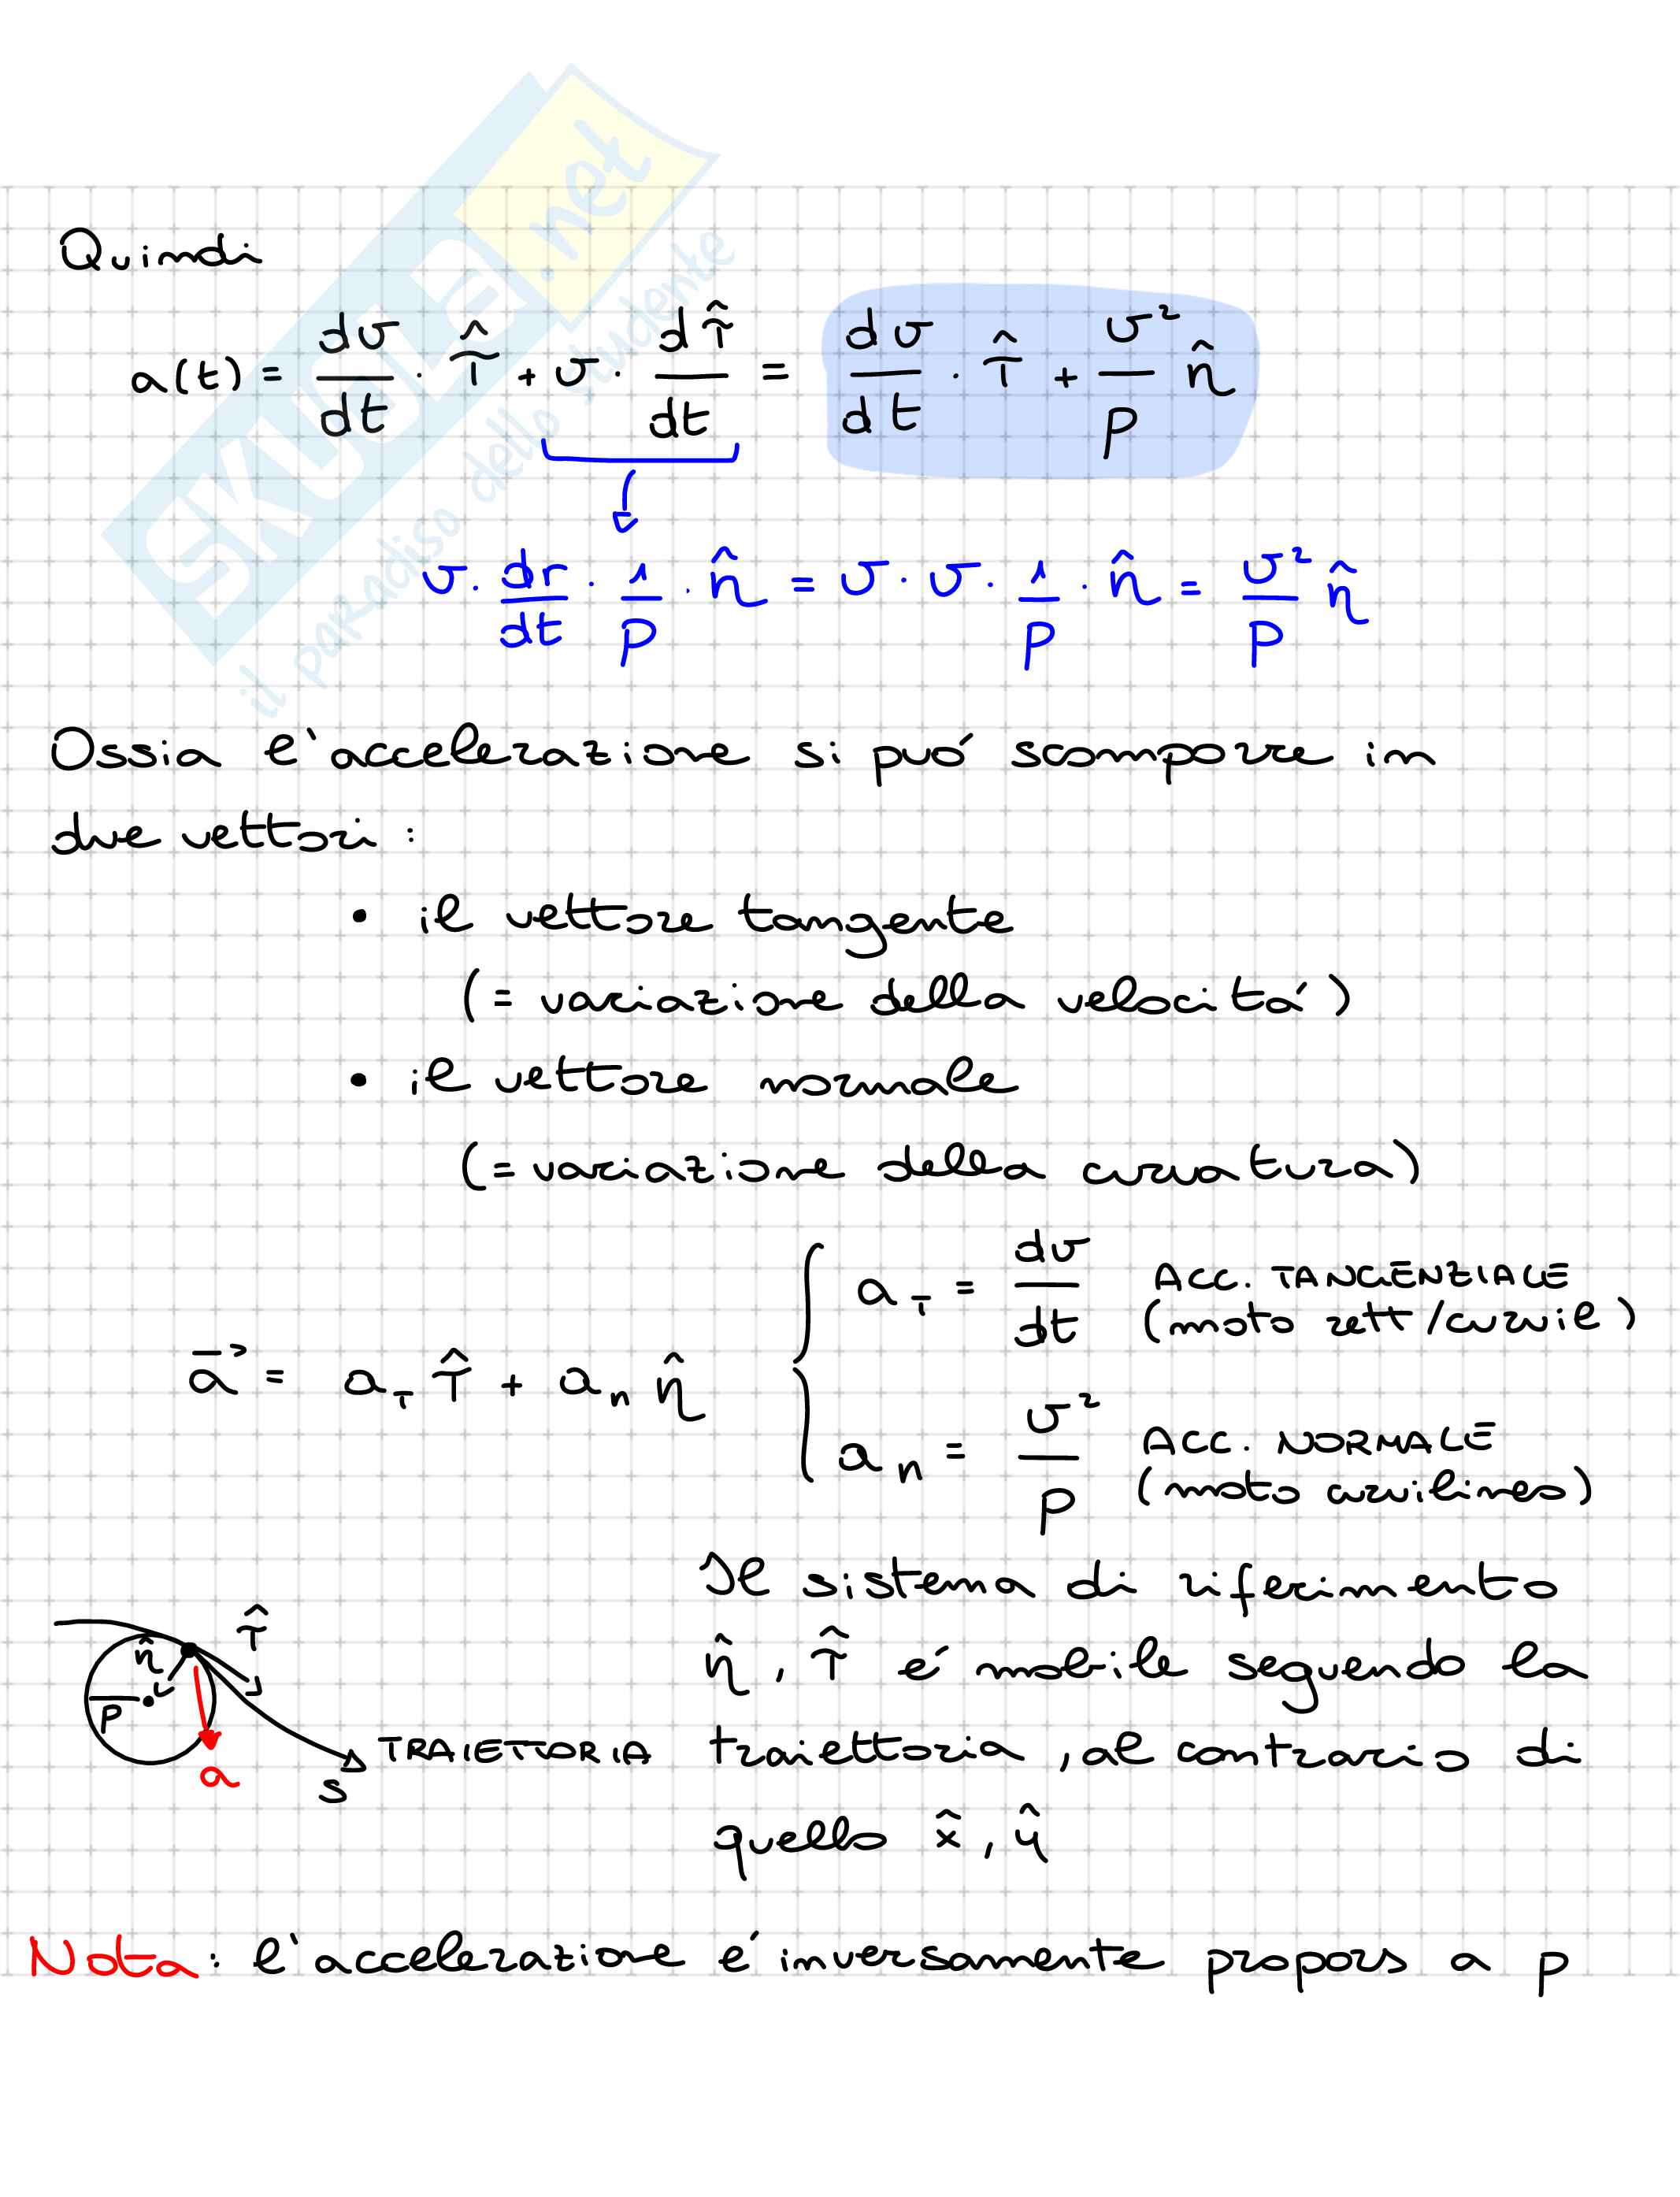 SKUOLA.net
il paradiso dello studente
Quindi
a(t) = dv/dt · τ̂ + v · dτ̂/dt = dv/dt · τ̂ + v²/ρ n̂
v · dr/dt · 1/ρ · n̂ = v · v · 1/ρ · n̂ = v²/ρ n̂
Ossia l'accelerazione si puó scomporre in
due vettori :
• il vettore tangente
(= variazione della velocitá)
• il vettore normale
(= variazione della curvatura)
a⃗ = a_τ τ̂ + a_n n̂
a_τ = dv/dt ACC. TANGENZIALE
(moto rett/curvil)
a_n = v²/ρ ACC. NORMALE
(moto curvilineo)
n̂ τ̂
ρ
a
s
TRAIETTORIA
Il sistema di riferimento
n̂, τ̂ é mobile seguendo la
traiettoria, al contrario di
quello x̂, ŷ
Nota: l'accelerazione é inversamente propors a ρ